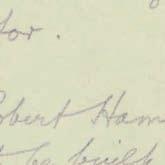 tor.
obert Ham
t be built